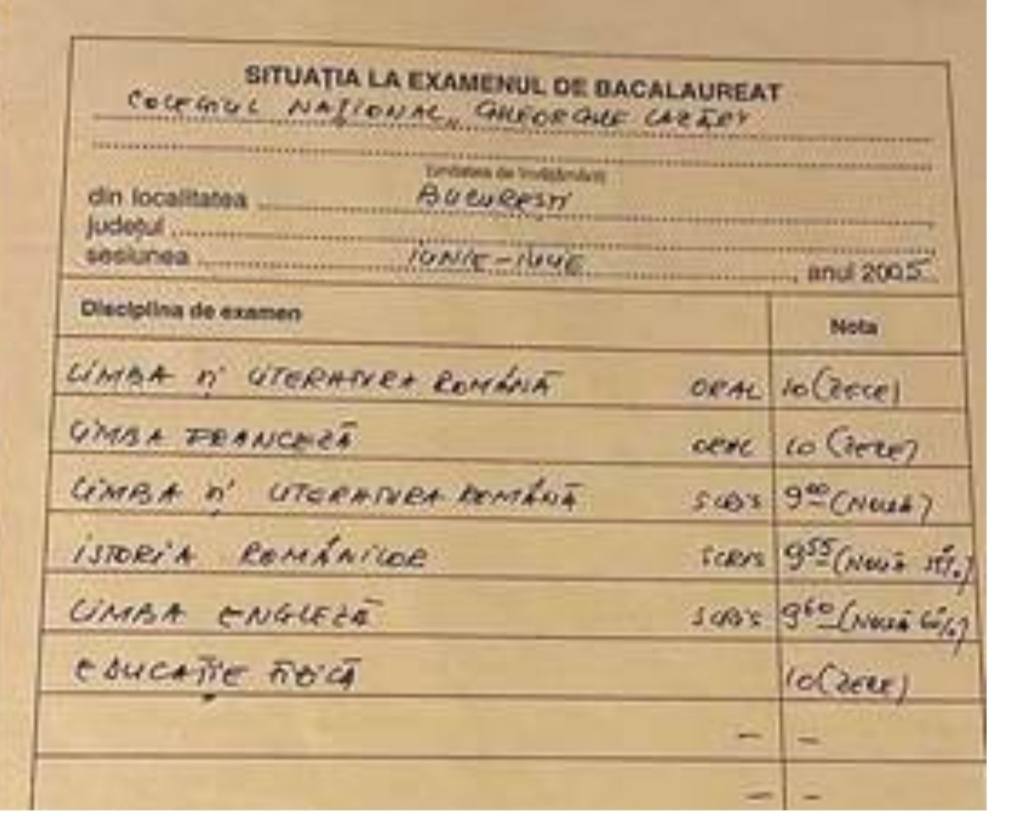 SITUAȚIA LA EXAMENUL DE BACALAUREAT
COLEGIUL NAȚIONAL „GHEORGHE LAZĂR"
Unitatea de învățământ
din localitatea BUCUREȘTI
județul
sesiunea IUNIE-IULIE, anul 2005
Disciplina de examen Nota
LIMBA ȘI LITERATURA ROMÂNĂ ORAL 10 (ZECE)
LIMBA FRANCEZĂ ORAL 10 (ZECE)
LIMBA ȘI LITERATURA ROMÂNĂ SCRIS 9 00 (NOUĂ)
ISTORIA ROMÂNILOR SCRIS 9 55 (NOUĂ 55%)
LIMBA ENGLEZĂ SCRIS 9 60 (NOUĂ 60%)
EDUCAȚIE FIZICĂ 10 (ZECE)
— —
— —